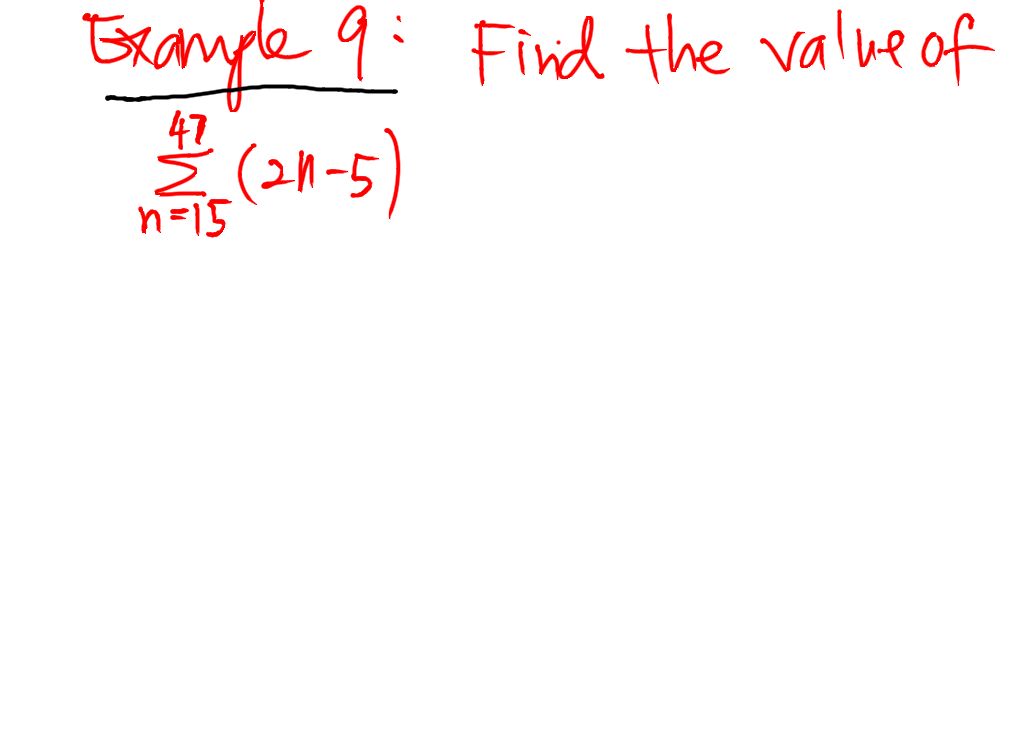 Example 9: Find the value of
47
∑ (2n-5)
n=15